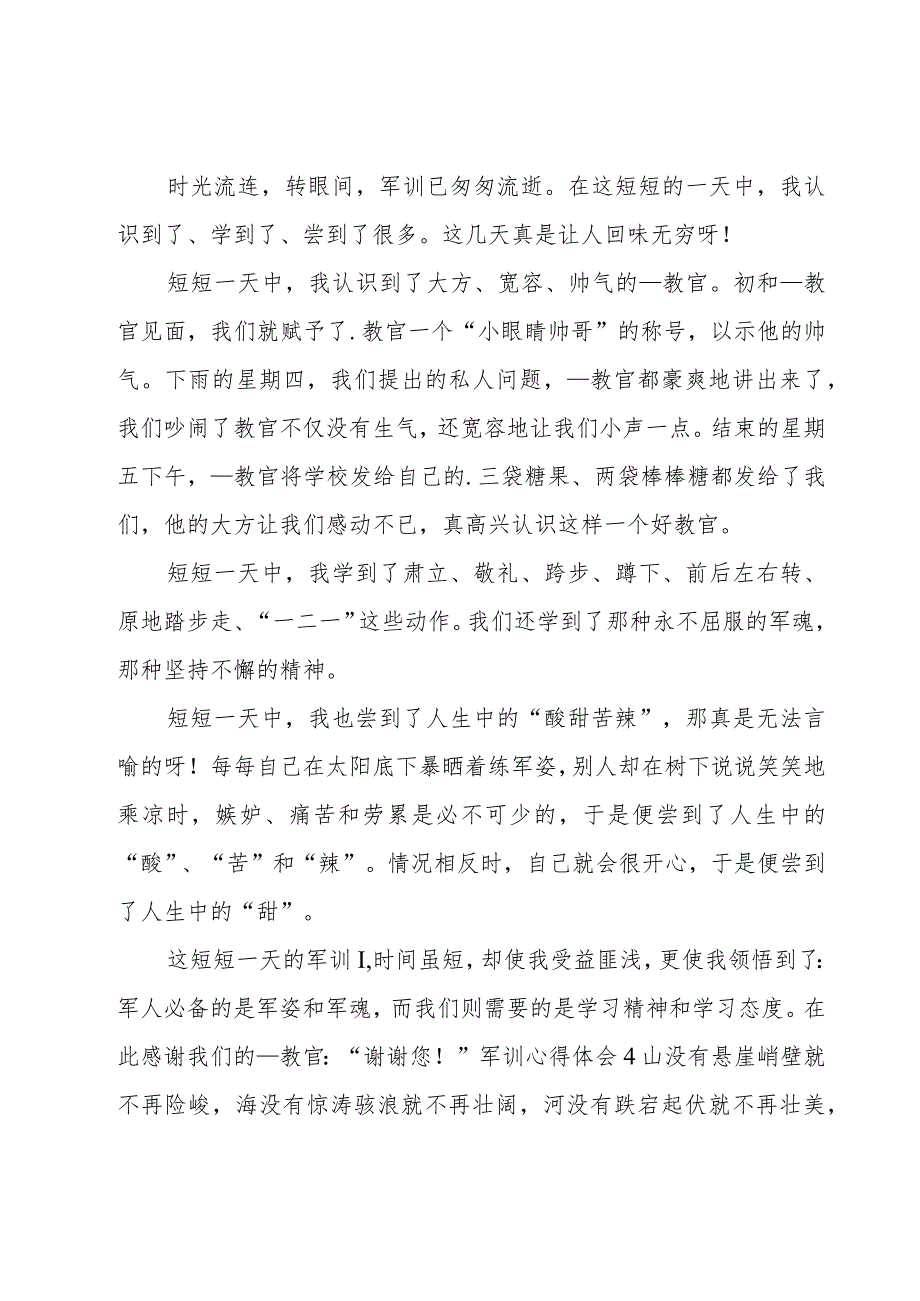 时光流连，转眼间，军训已匆匆流逝。在这短短的一天中，我认
识到了、学到了、尝到了很多。这几天真是让人回味无穷呀！
短短一天中，我认识到了大方、宽容、帅气的—教官。初和—教
官见面，我们就赋予了.教官一个“小眼睛帅哥”的称号，以示他的帅
气。下雨的星期四，我们提出的私人问题，—教官都豪爽地讲出来了，
我们吵闹了教官不仅没有生气，还宽容地让我们小声一点。结束的星期
五下午，—教官将学校发给自己的.三袋糖果、两袋棒棒糖都发给了我
们，他的大方让我们感动不已，真高兴认识这样一个好教官。
短短一天中，我学到了肃立、敬礼、跨步、蹲下、前后左右转、
原地踏步走、“一二一”这些动作。我们还学到了那种永不屈服的军魂，
那种坚持不懈的精神。
短短一天中，我也尝到了人生中的“酸甜苦辣”，那真是无法言
喻的呀！每每自己在太阳底下暴晒着练军姿，别人却在树下说说笑笑地
乘凉时，嫉妒、痛苦和劳累是必不可少的，于是便尝到了人生中的
“酸”、“苦”和“辣”。情况相反时，自己就会很开心，于是便尝到
了人生中的“甜”。
这短短一天的军训I,时间虽短，却使我受益匪浅，更使我领悟到了：
军人必备的是军姿和军魂，而我们则需要的是学习精神和学习态度。在
此感谢我们的—教官：“谢谢您！”军训心得体会4山没有悬崖峭壁就
不再险峻，海没有惊涛骇浪就不再壮阔，河没有跌宕起伏就不再壮美，